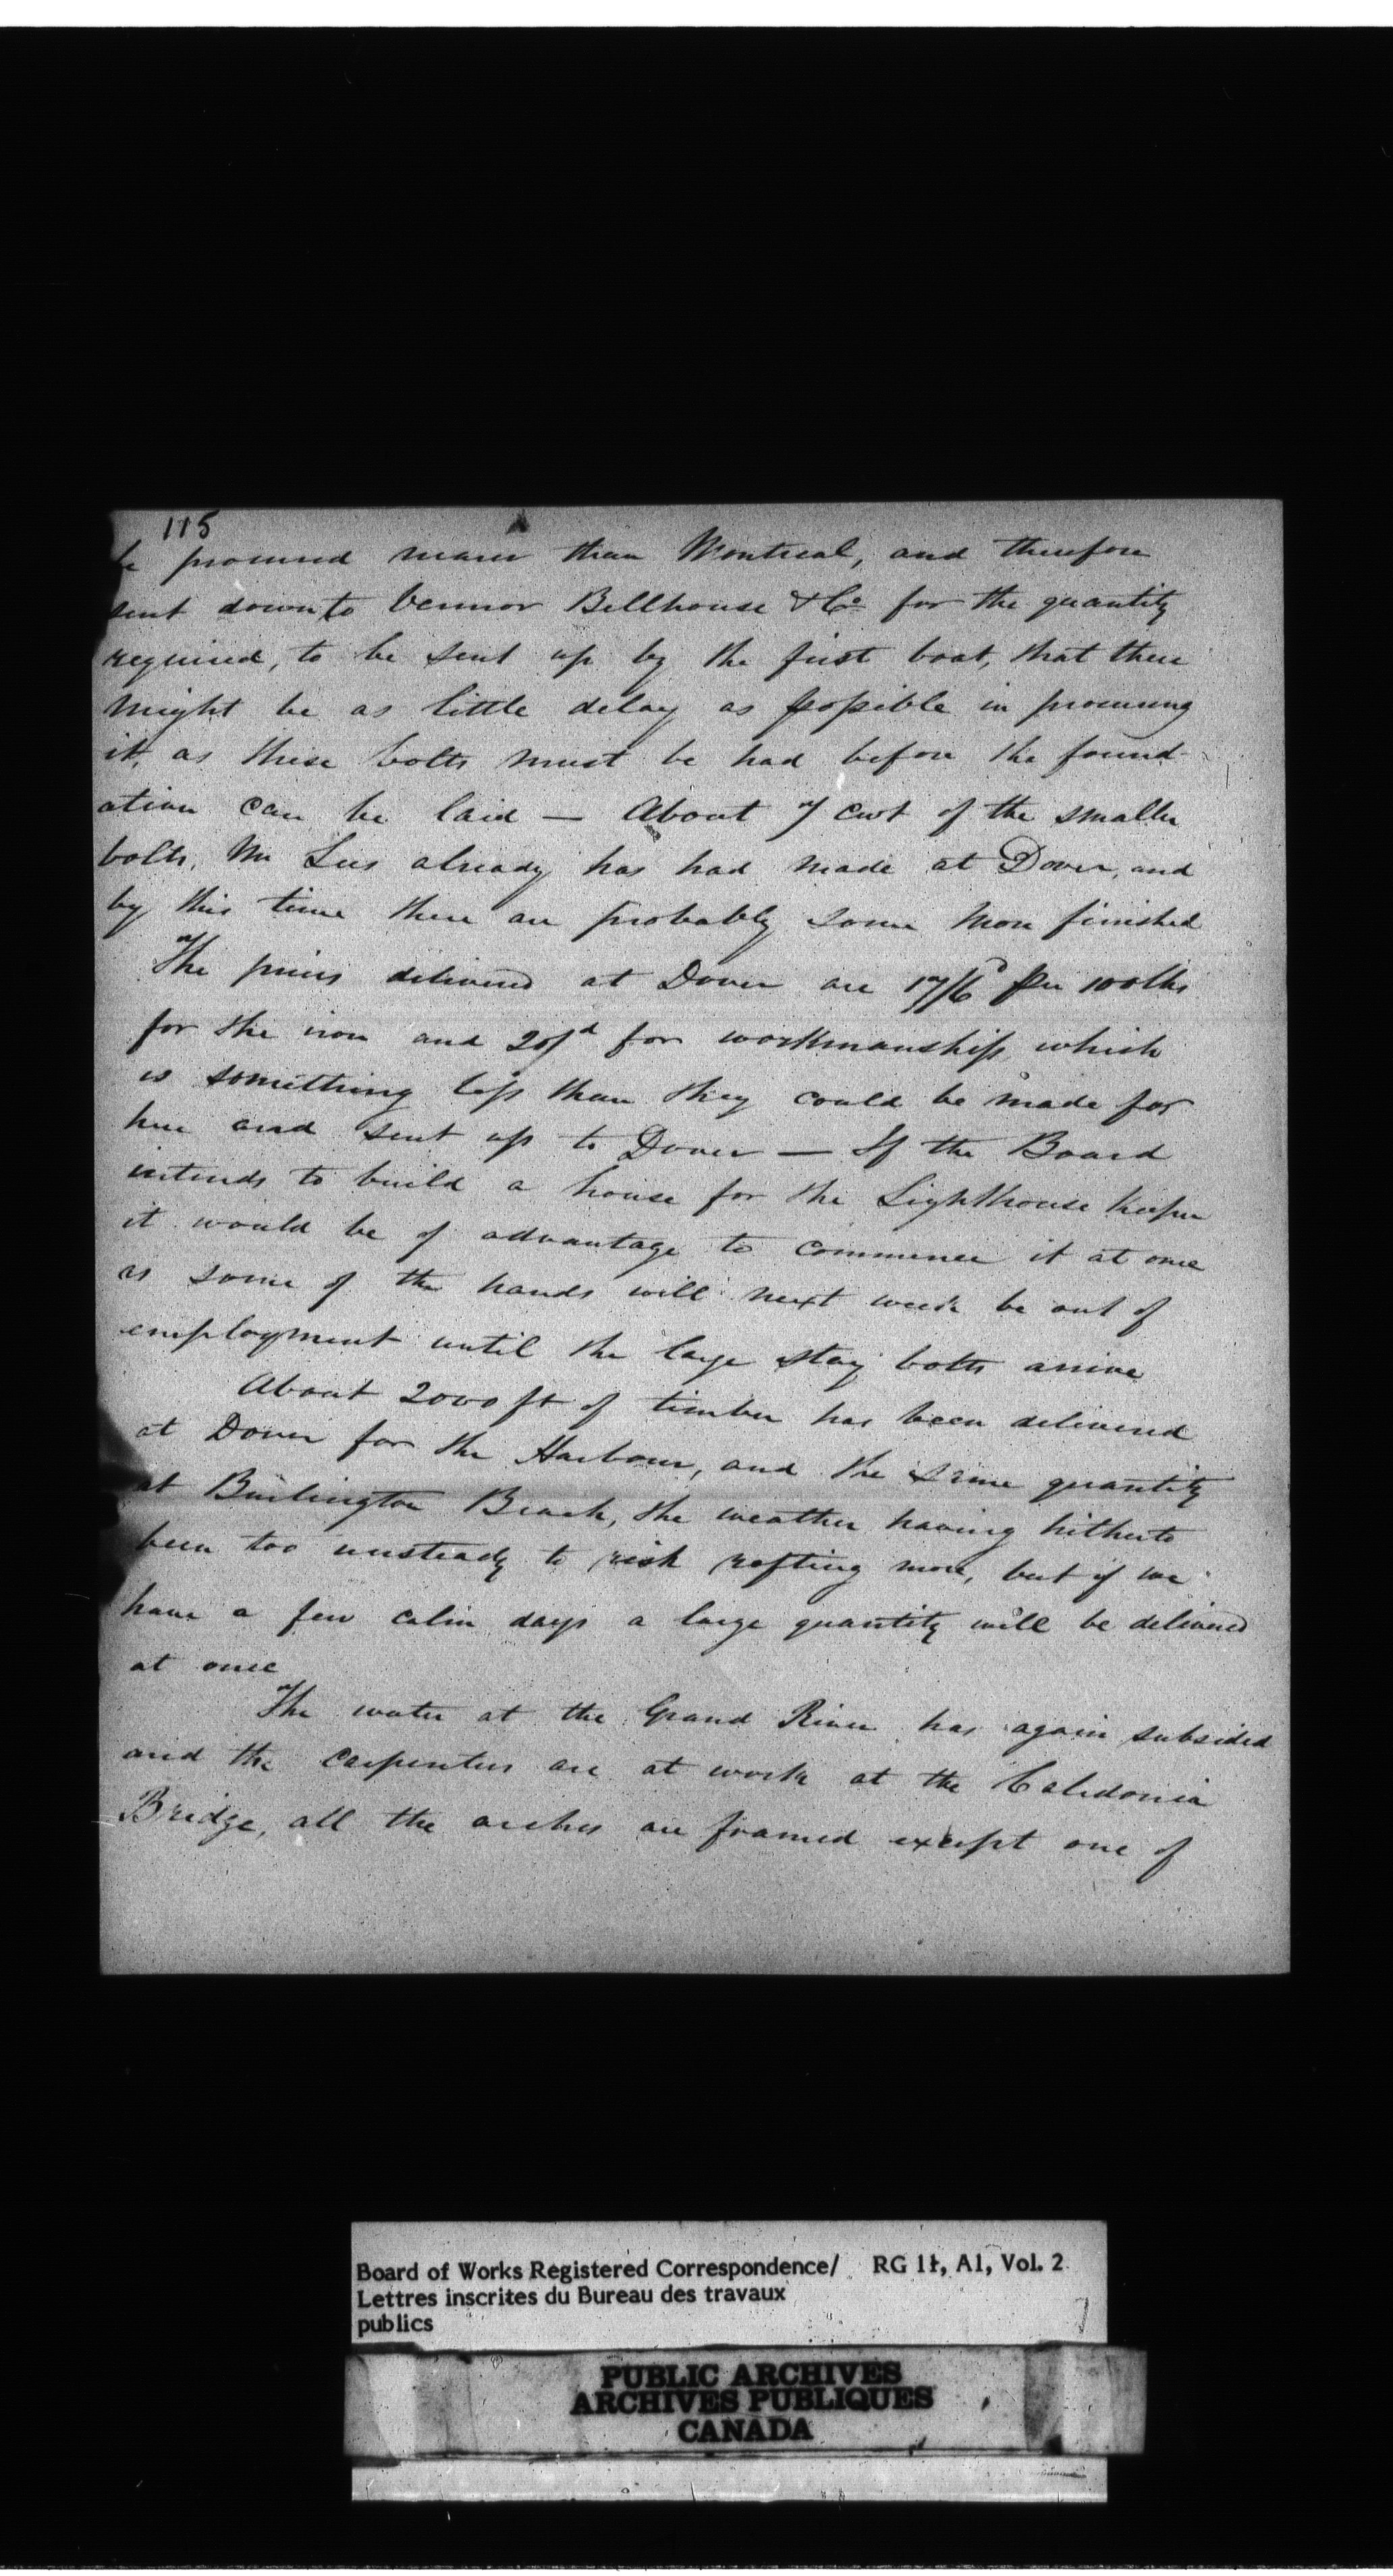 115
be procured nearer than Montreal, and therefore
sent down to Vennor Bellhouse & Co. for the quantity
required, to be sent up by the first boat, that there
might be as little delay as possible in procuring
it, as these bolts must be had before the found-
ation can be laid — About 7 cwt of the smaller
bolts, Mr Lees already has had made at Dover, and
by this time there are probably some more finished
The prices delivered at Dover are 17/6d per 100lbs
for the iron and 20/d for workmanship, which
is something less than they could be made for
here and sent up to Dover — If the Board
intends to build a house for the Lighthouse keeper
it would be of advantage to commence it at once
as some of the hands will next week be out of
employment until the large stay bolts arrive
About 2000 ft of timber has been delivered
at Dover for the Harbour, and the same quantity
at Burlington Beach, the weather having hitherto
been too unsteady to risk rafting more, but if we
have a few calm days a large quantity will be delivered
at once
The water at the Grand River has again subsided
and the carpenters are at work at the Caledonia
Bridge, all the arches are framed except one of
Board of Works Registered Correspondence/ RG 11, A1, Vol. 2
Lettres inscrites du Bureau des travaux
publics
PUBLIC ARCHIVES
ARCHIVES PUBLIQUES
CANADA